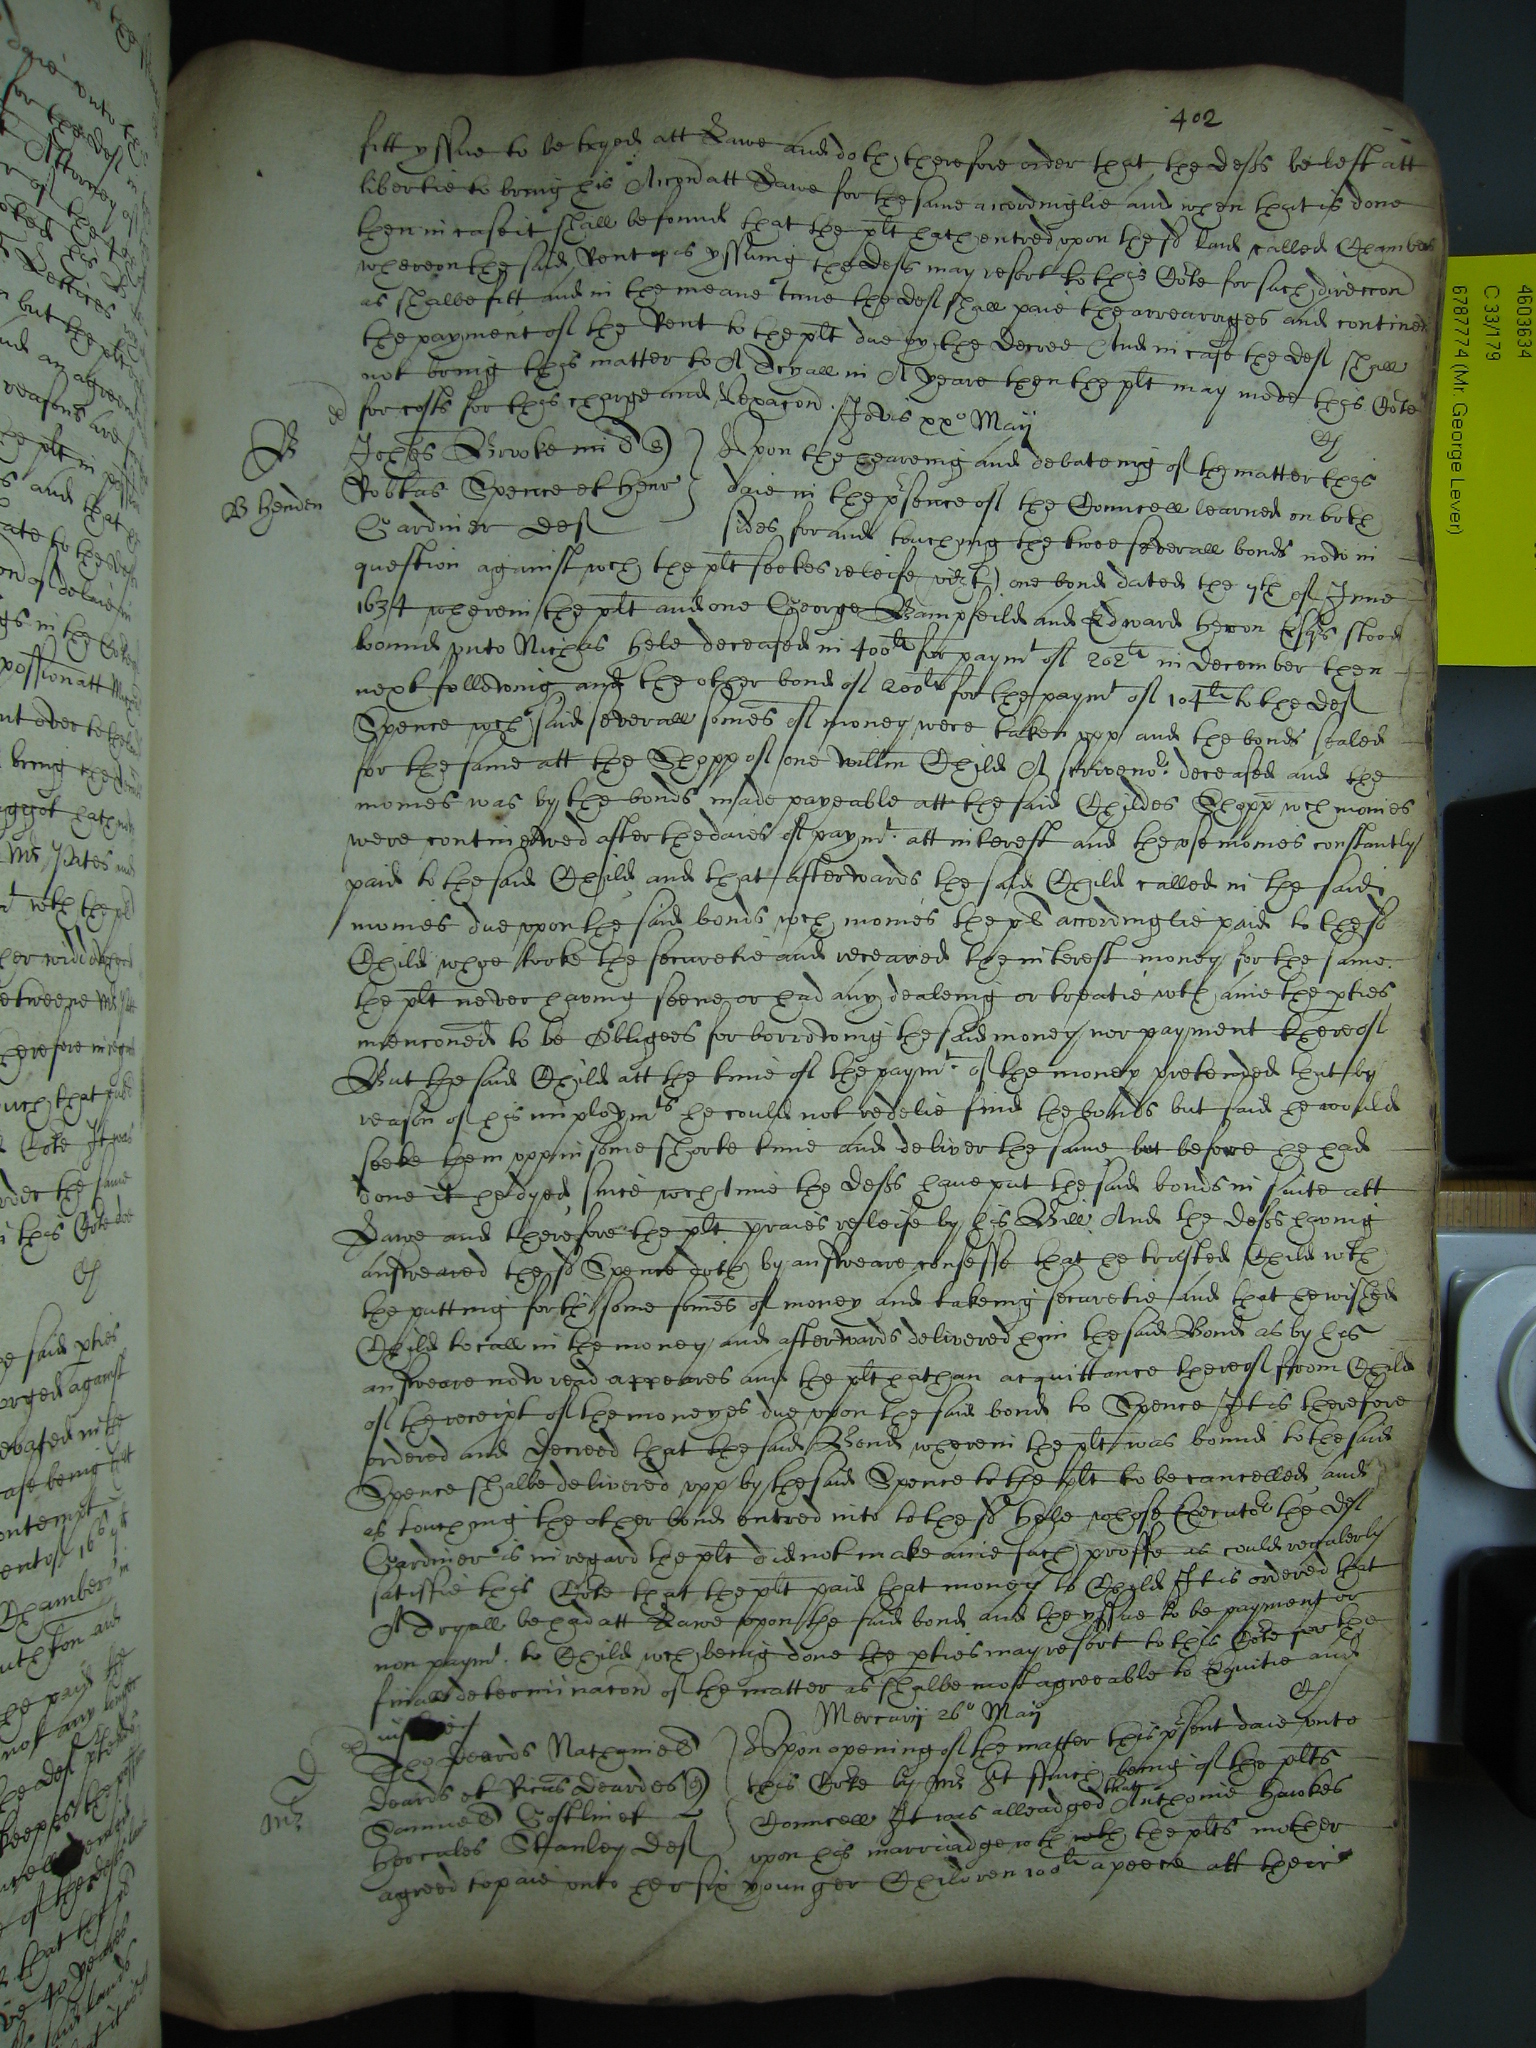 402
fitt yssue to be tryed att Lawe and doth therefore order that the defts be left att
libertie to bring his Accon att Lawe for the same accordinglie and when that is done
then in case it shall be found that the plt hath entred upon the sd land called Chambers
whereon the said Rent was yssuing the defts may resort to this Cote for such direccon
as shalbe fitt and in the meane time the deft shall paie the arrearages and continew
the payment of the Rent to the plt due by the decree And in case the deft shall
not bring this matter to A tryall in A yeare then the plt may move this Cote
for costs for this charge and vexacon. Jovis xxo Maij
B
B Henden
Johes Brooke mi
Robtus Spence et Henr
Gardiner deft
Upon the heareing and debateing of the matter this
daie in the psence of the Councell learned on both
sides for and touching the twoe severall bonds now in
question against wch the plt seekes releife vizt) one bond dated the 7th of June
1634 wherein the plt and one George Bampfeild and Edward Heron Esqrs stood
bound unto Nichas Hele deceased in 400li for paymt of 202li in December then
next followeing and the other bond of 200li for the paymt of 104li to the deft
Spence wch said severall somes of money were taken upp and the bonds sealed
for the same att the Shopp of one Willm Child A scrivenor deceased and the
monies was by the bonds made payeable att the said Childes Shopp wch monies
were continewed after the daies of paymt att interest and the use monies constantly
paid to the said Child and that afterwards the said Child called in the said
monies due upon the said bonds wch monies the plt accordinglie paid to the sd
Child whoe tooke the securetie and receaved the interest money for the same
the plt never having seene or had any dealeing or treatie wth anie the pties
menconed to be Obligees for borroweing the said money nor payment thereof
But the said Child att the time of the paymt of the money pretended that by
reason of his imploymts he could not redelie find the bonds but said he would
seeke them upp in some shorte time and deliver the same but before he had
done it he dyed since wch time the defts have put the said bonds in suite att
Lawe and therefore the plt praies releife by his Bill And the defts having
answeared the sd Spence doth by answeare confesse that he trusted Child wth
the putting forth some somes of money and takeing securetie and that he wished
Child to call in the money and afterwards delivered him the said Bond as by his
answeare now read appeares and the plt hath an acquittance thereof from Child
of the receipt of the moneyes due upon the said bond to Spence It is therefore
ordered and decreed that the said Bond wherein the plt was bound to the said
Spence shalbe delivered upp by the said Spence to the plt to be cancelled and
as touching the other bond entred into to the sd Hele whose Executor the deft
Gardiner is in regard the plt did not make anie such proffe as could regularly
satisfie this Cote that the plt paid that money to Child It is ordered that
A tryall be had att Lawe upon the said bond and the yssue to be payment or
non paymt to Child wch being done the pties may resort to this Cote for the
finall determinacon of the matter as shalbe most agreeable to Equitie and
Mercurij 26o Maij
D
Tho Deards Nathaniell
Deards et Ricus Deardes
Samuell Costlin et
Hercules Stanley deft
Upon opening of the matter this psent daie unto
this Cote by Mr ffinch being of the plts
Councell It was alleadged that Anthonie Hawkes
upon his marriadge wth the plts mother
agreed to paie unto her six younger Children 100li apeece att their
4603634
C 33/179
6787774 (Mr. George Lever)